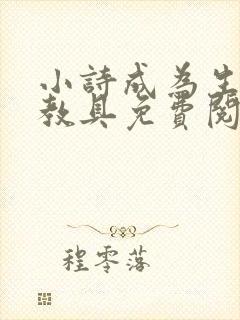 小詩成為生
教具免費閱
程零落